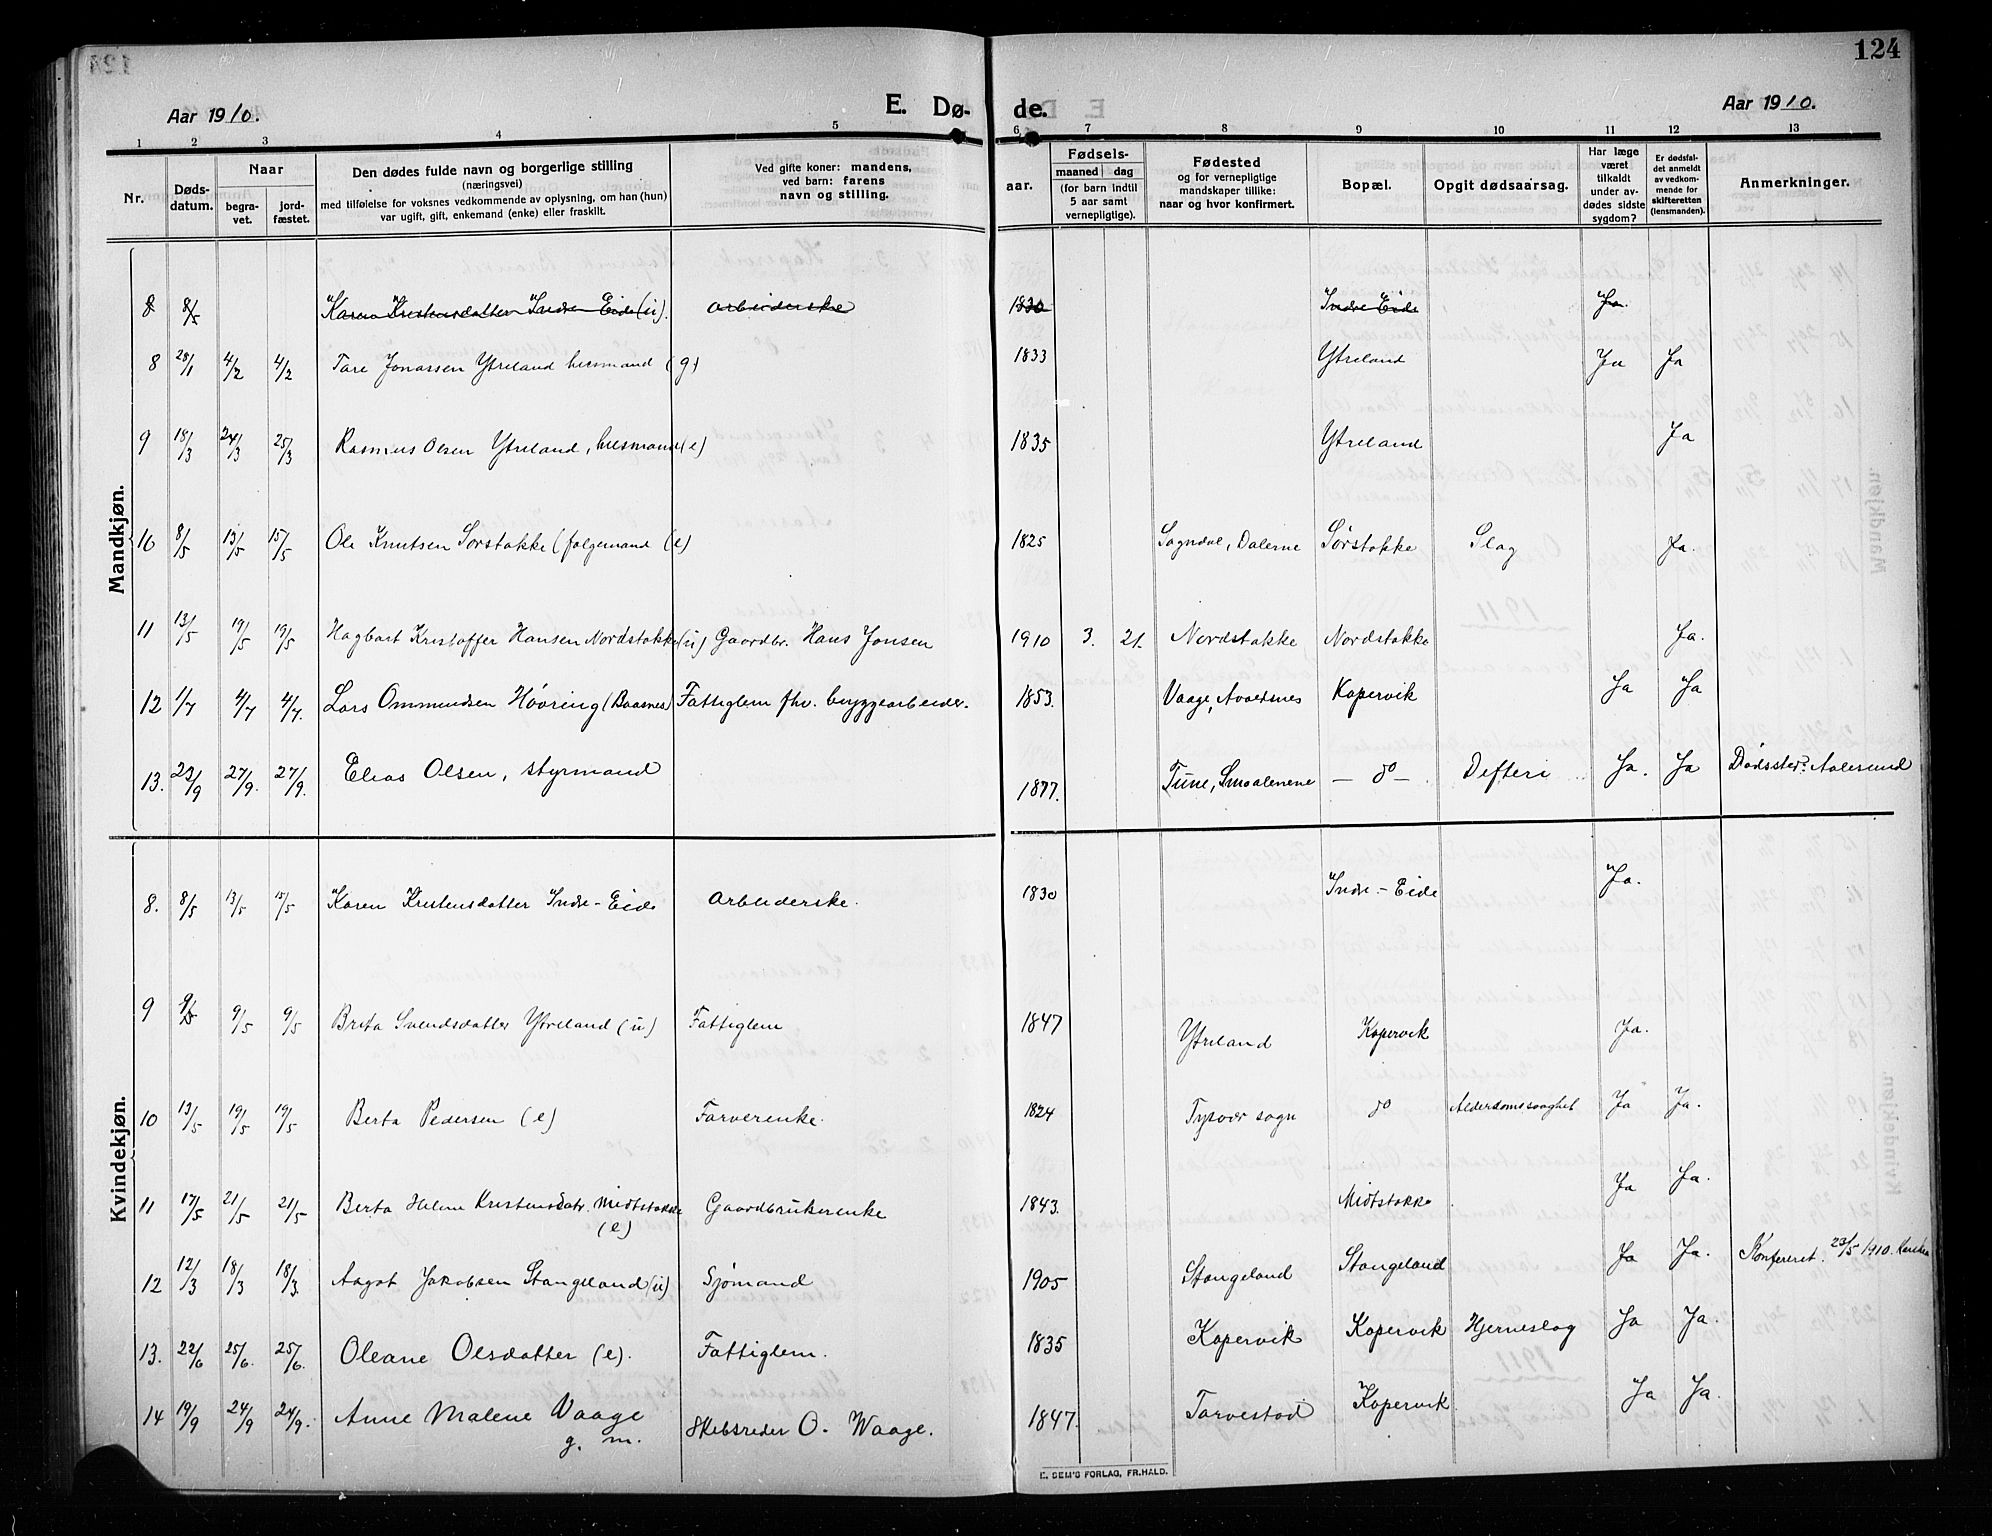 124
Aar 1910.
E. Dø-
de.
Aar 1910.
1 2 3 4 5 6 7 8 9 10 11 12 13
Nr.
Døds-
datum.
Naar
begra-
vet.
jord-
fæstet.
Den dødes fulde navn og borgerlige stilling
(næringsvei)
med tilføielse for voksnes vedkommende av oplysning, om han (hun)
var ugift, gift, enkemand (enke) eller fraskilt.
Ved gifte koner: mandens,
ved barn: farens
navn og stilling.
Fødsels-
aar.
maaned dag
(for barn indtil
5 aar samt
vernepligtige).
Fødested
og for vernepligtige
mandskaper tillike:
naar og hvor konfirmert.
Bopæl.
Opgit dødsaarsag.
Har læge
været
tilkaldt
under av-
dødes sidste
sygdom?
Er dødsfal-
det anmeldt
av vedkom-
mende for
skifteretten
(lensmanden).
Anmerkninger.
Mandkjøn.
8 8/5 Karen Kristensdatter Indre Eide (u). arbeiderske 1830 Indre Eide Ja.
8 28/1 4/2 4/2 Tore Jonassen Ytreland husmand (g) 1833 Ytreland Ja Ja
9 18/3 24/3 25/3 Rasmus Olsen Ytreland, husmand (e) 1835 Ytreland Ja
10 8/5 13/5 15/5 Ole Knutsen Sørstokke (folgemand (e) 1825 Sogndal, Dalerne Sørstokke Slag Ja.
11 13/5 19/5 19/5 Hagbart Kristoffer Hansen Nordstokke (u) Gaardbr. Hans Jonsen 1910 3. 21. Nordstokke Nordstokke Ja.
12 1/7 4/7 4/7. Lars Ommundsen Høvring (Baasnes) Fattiglem fhv. bryggearbeider. 1853. Vaage, Avaldsnes Kopervik Ja Ja
13. 23/9 27/9. 27/9. Elias Olsen, styrmand 1877. Tune, Smaalenene — do — Difteri Ja. Ja Dødssted: Aalesund
Kvindekjøn.
8. 8/5 13/5 15/5 Karen Kristensdatter Indre-Eide arbeiderske. 1830 Indre-Eide Ja.
9 9/5 9/5 9/5 Brita Svendsdatter Ytreland (u) Fattiglem 1847 Ytreland Kopervik Ja.
10 13/5 19/5 19/5 Berta Pedersen (e) Farverenke. 1824 Tysvær sogn do Alderdomssvaghet Ja Ja.
11 17/5 21/5 21/5 Berta Helene Kristensdatr. Midtstokke
(e) Gaardbrukerenke 1843. Midtstokke Ja Ja.
12 12/3 18/3 18/3. Aagot Jakobsen Stangeland (u) Sjømand 1905 Stangeland Stangeland Ja Ja. Konfereret 23/5 1910.
13. 22/6 25/6. 25/6. Oleane Olsdatter (e). Fattiglem. 1835 Kopervik Kopervik Hjerneslag Ja Ja.
14 19/9 24/9 24/9. Anne Malene Vaage
g. m. Skibsreder O. Waage. 1847. Torvestad Kopervik Ja Ja.
E. SEM'S FORLAG, FR.HALD.